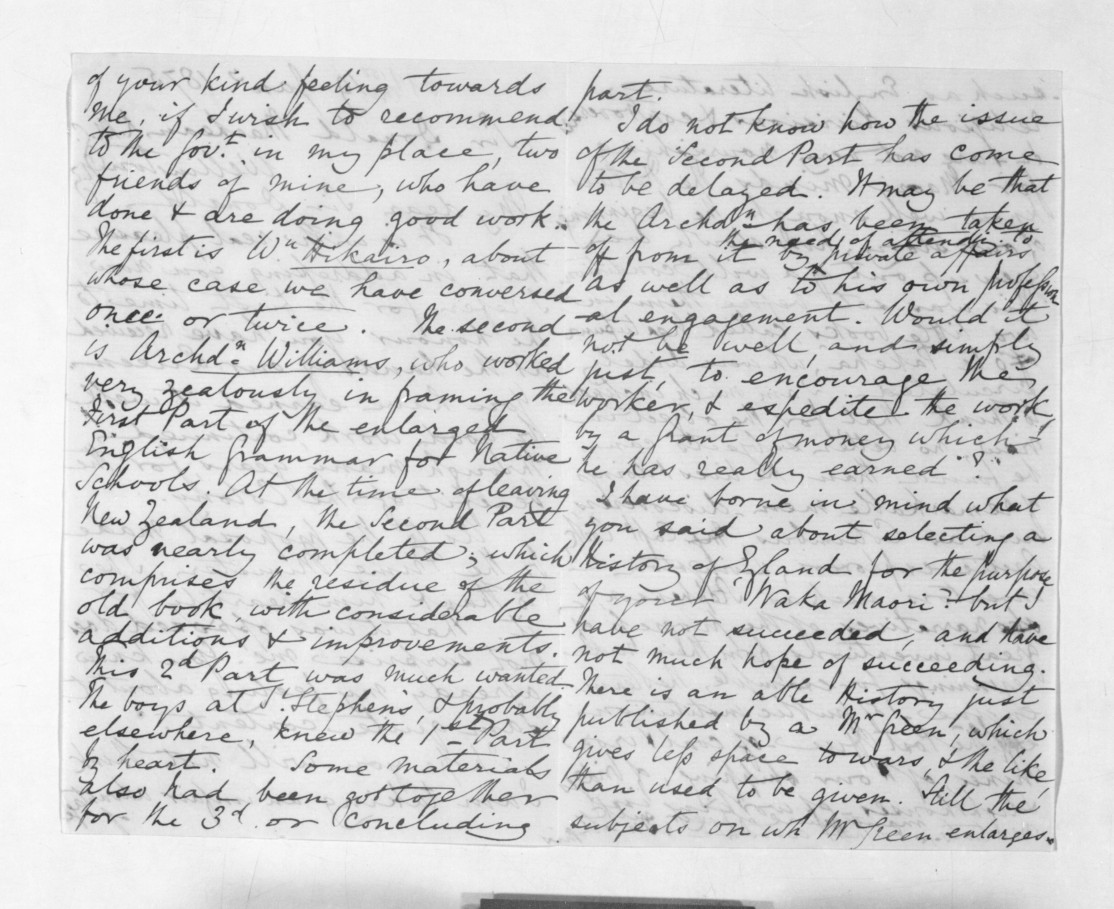 of your kind feeling towards
me, if I wish to recommend
to the Govt. in my place, two
friends of mine, who have
done & are doing good work.
The first is Wm Hikairo, about
whose case we have conversed
once or twice. The second
is Archdn. Williams, who worked
very zealously in framing the
First Part of the enlarged
English Grammar for Native
Schools. At the time of leaving
New Zealand, the Second Part
was nearly completed; which
comprises the residue of the
old book, with considerable
additions & improvements.
This 2d Part was much wanted.
The boys at St. Stephens, & probably
elsewhere, knew the 1st Part
by heart. Some materials
also had been got together
for the 3d. or concluding
part.
I do not know how the issue
of the Second Part has come
to be delayed. It may be that
the Archdn has been taken
off from it by the need of attending to private affairs
as well as to his own profession
-al engagement. Would it
not be well, and simply
just, to encourage the
worker, & expedite the work,
by a grant of money which
he has really earned?
I have borne in mind what
you said about selecting a
History of England for the purpose
of your 'Waka Maori': but I
have not succeeded, and have
not much hope of succeeding.
There is an able History just
published by a Mr Green, which
gives less space to wars, & the like
than used to be given. Still the
subjects on wh Mr Green enlarges.